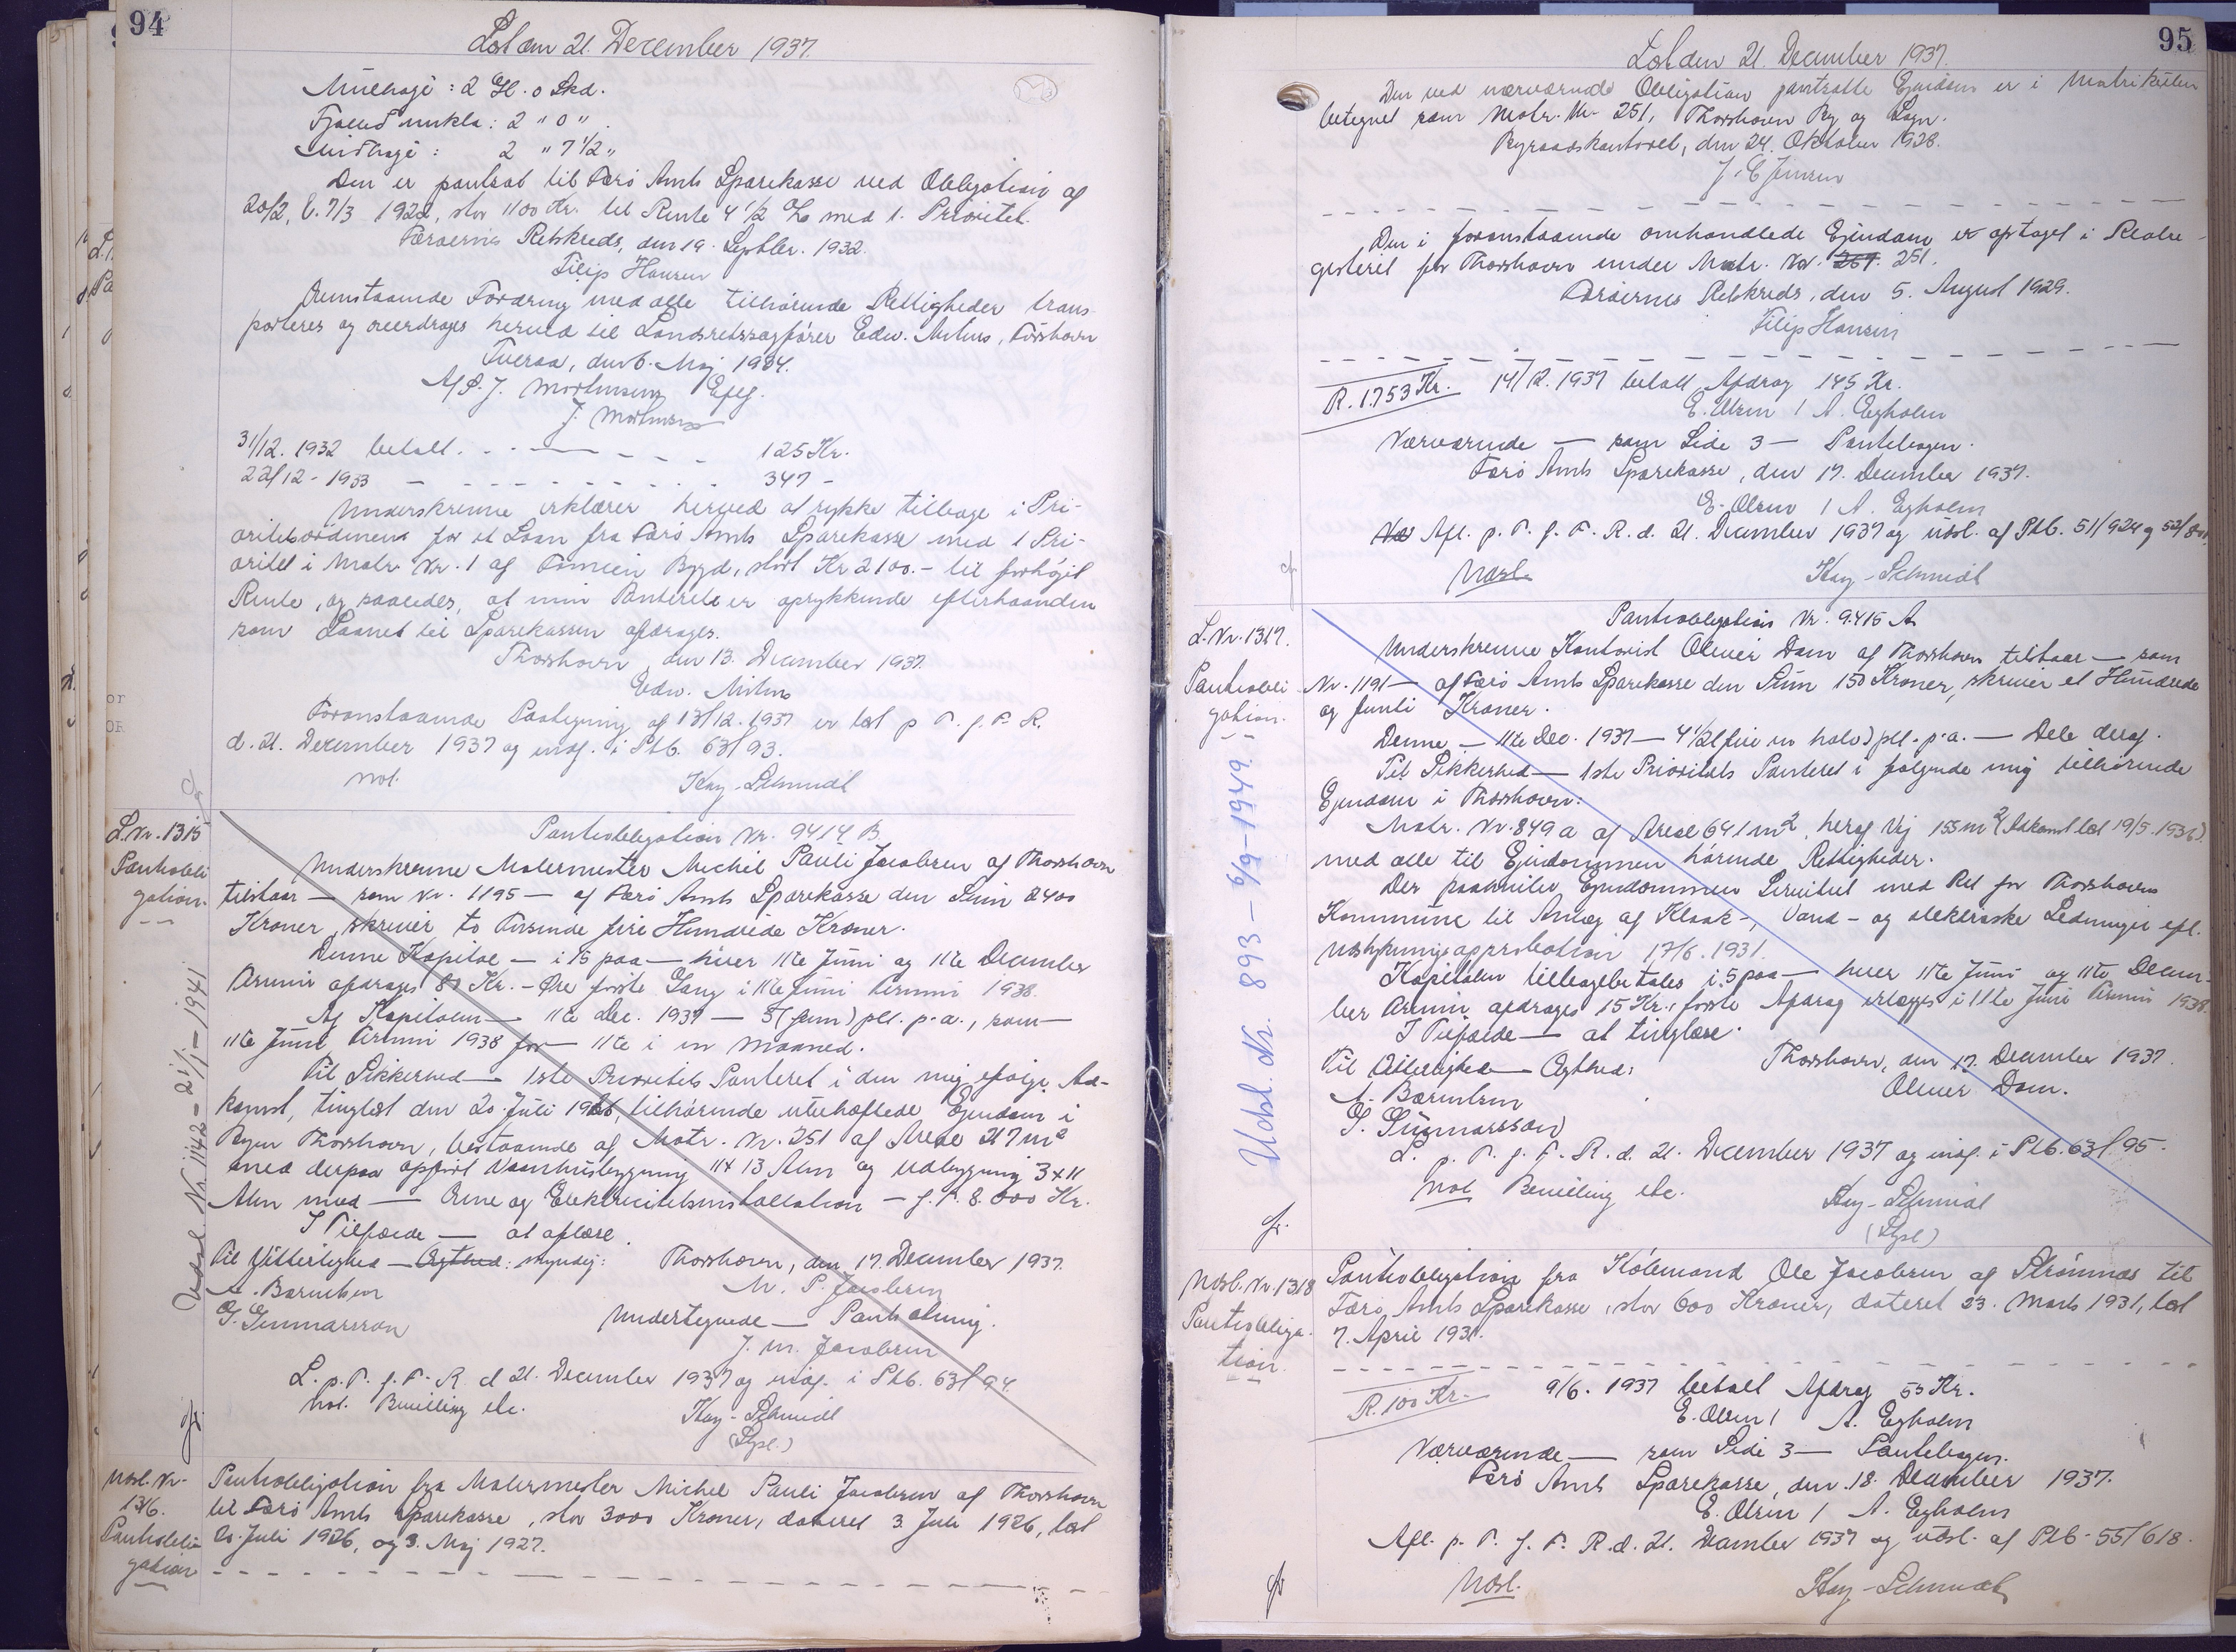 94
Læst den 21. December 1937.
: 2 Gl. 0 Skd.
: 2 " 0 "
: 2 " 7 1/2 "
Den er pantsat til Færø Amts Sparekasse ved Obligation af
20/2, l. 7/3 1922, stor 1100 Kr. til Rente 4 1/2 % med 1. Prioritet.
Færøernes Retskreds, den 19. Septbr. 1932.
Filip Hansen
Ovenstaaende Fordring med alle tilhørende Rettigheder trans-
porteres og overdrages herved til Landsretssagfører Edw. Mitens, Tórshavn
Tveraa, den 6. Maj 1934.
Af P. J. Mortensens Eftf.
J. Mortensen
31/12. 1932 betalt. . . - - - 125 Kr.
22/12 - 1933 - - - - - 347 -
Underskrevne erklærer herved at rykke tilbage i Pri-
oritetsordenen for et Laan fra Færø Amts Sparekasse med 1 Pri-
oritet i Matr. Nr. 1 af Bygd, stort Kr 2100.- til forhøjet
Rente, og saaledes, at min Panteret er oprykkende efterhaanden
som Laanet til Sparekassen afdrages.
Thorshavn, den 13. December 1937.
Edw. Mitens
Foranstaaende Paategning af 13/12. 1937 er læst p. T. f. F. R.
d. 21. December 1937 og indf. i Ptb. 63/93.
Not. Kay-Schmidt
L. Nr. 1315
Pantobli
gation.
Udsl. Nr. 1142 - 21/1 - 1941
Pantobligation Nr. 9414 B
Underskrevne Malermester Michel Pauli Jacobsen af Thorshavn
tilstaar — som Nr. 1195 — af Færø Amts Sparekasse den Sum 2400
Kroner, skriver to Tusinde fire Hundrede Kroner.
Denne Kapital — i 15 paa — hver 11te Juni og 11te December
Termin afdrages 80 Kr. - Øre første Gang i 11te Juni Termin 1938.
Af Kapitalen — 11te Dec. 1937 — 5 (fem) pCt. p.a., som —
11te Juni Termin 1938 for — 11te i en Maaned.
Til Sikkerhed — 1ste Prioritets Panteret i den mig ifølge Ad-
komst, tinglæst den 20. Juli 1926, tilhørende ubehæftede Ejendom i
Byen Thorshavn, bestaaende af Matr. Nr. 251 af Areal 217 m2
med derpaa opført Vaaningsbygning 11 x 13 Alen og Udbygning 3 x 11
Alen med — Ovne og Elektricitetsinstallation — f. F. 8.000 Kr.
I Tilfælde — at aflæse.
Til Vitterlighed — Ægthed: Myndig: Thorshavn, den 17. December 1937.
A. Bærentsen M. P. Jacobsen
G. Gunnarsson Undertegnede — Pantsætning.
J. M. Jacobsen
L. p. T. f. F. R. d 21. December 1937 og indf. i Ptb. 63/94.
Not. Bevilling etc. Kay-Schmidt
(Sysl.)
Udsl. Nr.
1316.
Pantobli
gation
Pantobligation fra Malermester Michel Pauli Jacobsen af Thorshavn
til Færø Amts Sparekasse, stor 3000 Kroner, dateret 3. Juli 1926, læst
20. Juli 1926, og 3. Maj 1927.
95
Læst den 21. December 1937.
Den ved nærværende Obligation pantsatte Ejendom er i Matrikulen
betegnet som Matr. Nr. 251, Thorshavn By og Sogn.
Byraadskontoret, den 24. Oktober 1928.
J. C. Jensen
Den i foranstaaende omhandlede Ejendom er optaget i Realre-
gisteret for Thorshavn under Matr. Nr. 251.
Færøernes Retskreds, den 5. August 1929.
Filip Hansen
R. 1753 Kr. 14/12. 1937 betalt Afdrag 145 Kr.
E. Olsen / A. Egholm
Nærværende — som Side 3 — Pantebogen.
Færø Amts Sparekasse, den 17. December 1937.
E. Olsen / A. Egholm
Afl. p. T. f. F. R. d. 21. December 1937 og udsl. af Ptb. 51/924 og
Udsl. Kay-Schmidt
L. Nr. 1317.
Pantobli
gation.
Udsl. Nr. 893 - 6/9 - 1949.
Pantobligation Nr. 9415 A
Underskrevne Kontorist Oliver Dam af Thorshavn tilstaar — som
Nr. 1191 — af Færø Amts Sparekasse den Sum 150 Kroner, skriver et Hundrede
og femti Kroner.
Denne — 11te Dec. 1937 — 4 1/2 (fire en halv) pCt. p.a. — Dele deraf.
Til Sikkerhed — 1ste Prioritets Panteret i følgende mig tilhørende
Ejendom i Thorshavn:
Matr. Nr. 849 a af Areal 641 m2, heraf Vej 155 m2 (Adkomst læst 19/5. 1936)
med alle til Ejendommen hørende Rettigheder.
Der paahviler Ejendommen Servitut med Ret for Thorshavns
Kommune til Anlæg af Kloak-, Vand- og elektriske Ledninger efl.
Udstykningsapprobation 17/6. 1931.
Kapitalen tilbagebetales i 5 paa — hver 11te Juni og 11te Decem-
ber Termin afdrages 15 Kr., første Afdrag erlægges i 11te Juni Termin 1938.
I Tilfælde — at tinglæse.
Til Vitterlighed — Ægthed: Thorshavn, den 17. December 1937.
A. Bærentsen Oliver Dam.
G. Gunnarsson
L. p. T. f. F. R. d. 21. December 1937 og indf. i Ptb. 63/95.
Not Bevilling etc. Kay-Schmidt
(Sysl)
Udsl. Nr 1318
Pantobliga-
tion.
Pantobligation fra Købmand Ole Jacobsen af Strømnæs til
Færø Amts Sparekasse, stor 600 Kroner, dateret 23. Marts 1931, læst
7. April 1931.
R. 100 Kr. 9/6. 1937 betalt Afdrag 55 Kr.
E. Olsen / A. Egholm
Nærværende — som Side 3 — Pantebogen.
Færø Amts Sparekasse, den 18. December 1937.
E. Olsen / A. Egholm
Afl. p. T. f. F. R. d. 21. December 1937 og udsl. af Ptb. 55/618.
Udsl. Kay-Schmidt